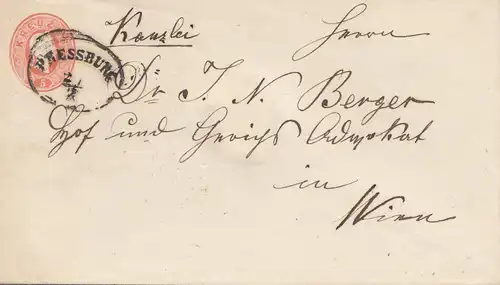 KREUZER
PRESSBURG
Kanzlei
Herrn
Dr J. N. Berger
Hof und Gerichs Advokat
in
Wien